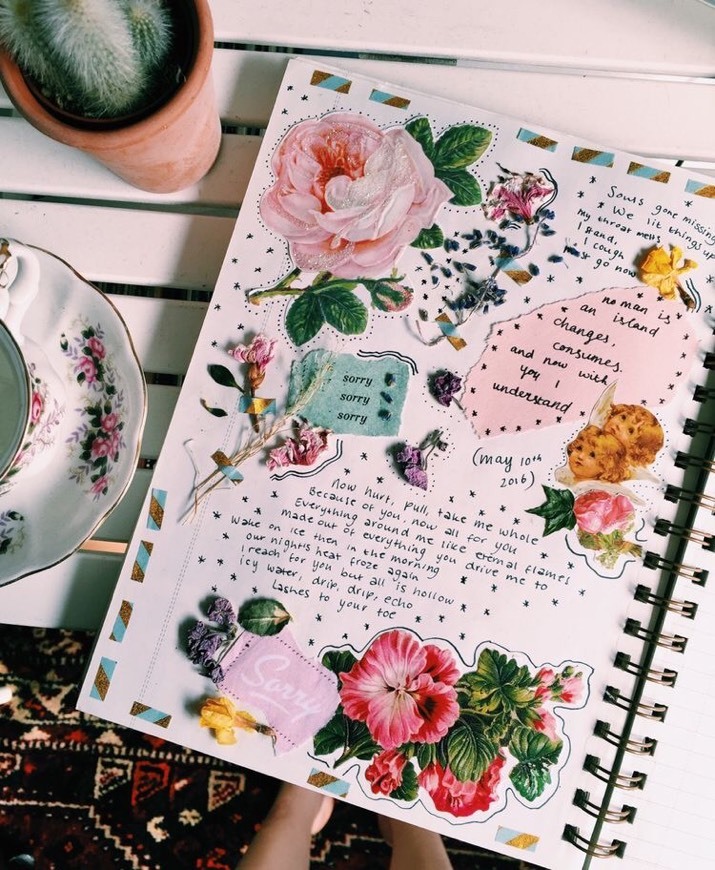 Souls gone missing
We lit things up
my throat melts
I pand,
I cough
& go now
no man is
an island
changes,
consumes.
and now with
you I
understand
sorry
sorry
sorry
(may 10th
2016)
Now hurt, pull, take me whole
Because of you, now all for you
Everything around me like eternal flames
made out of everything you drive me to
Wake on ice then in the morning
our nights heat froze again
I reach for you but all is hollow
icy water, drip, drip, echo
Lashes to your toe
Sorry